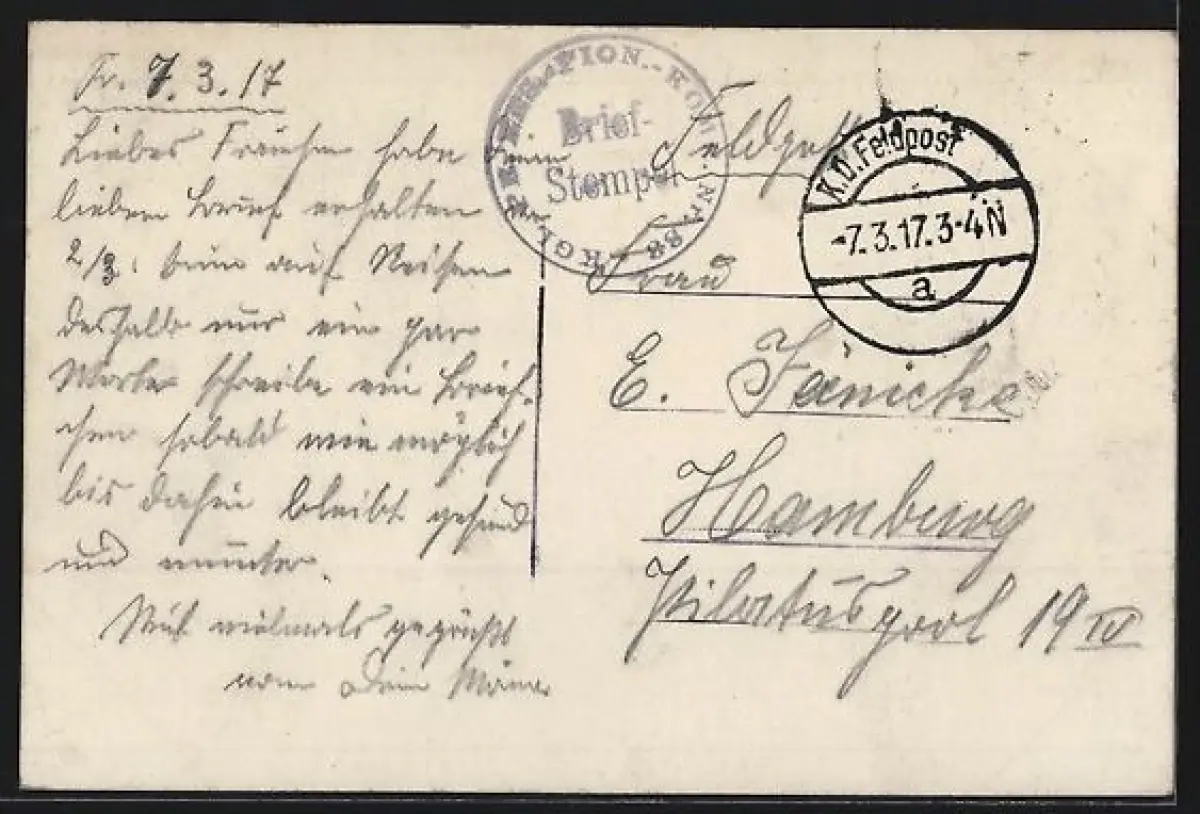 Fr. 7.3.17
Liebes Frauchen habe deinen
lieben Brief erhalten
2/3. bin auf Reisen
deshalb nur ein par
Worte schreibe ein Brief-
chen sobald wie möglich
bis dahin bleibt gesund
und munter.
Mit vielmals gegrüßt
von Dein
Brief-
Stempel
NR. 88
Feldpost
K.D. Feldpost
-7.3.17.3-4N
a
Frau
E. Jänicke
Hamburg
Pilatuspool 19 IV